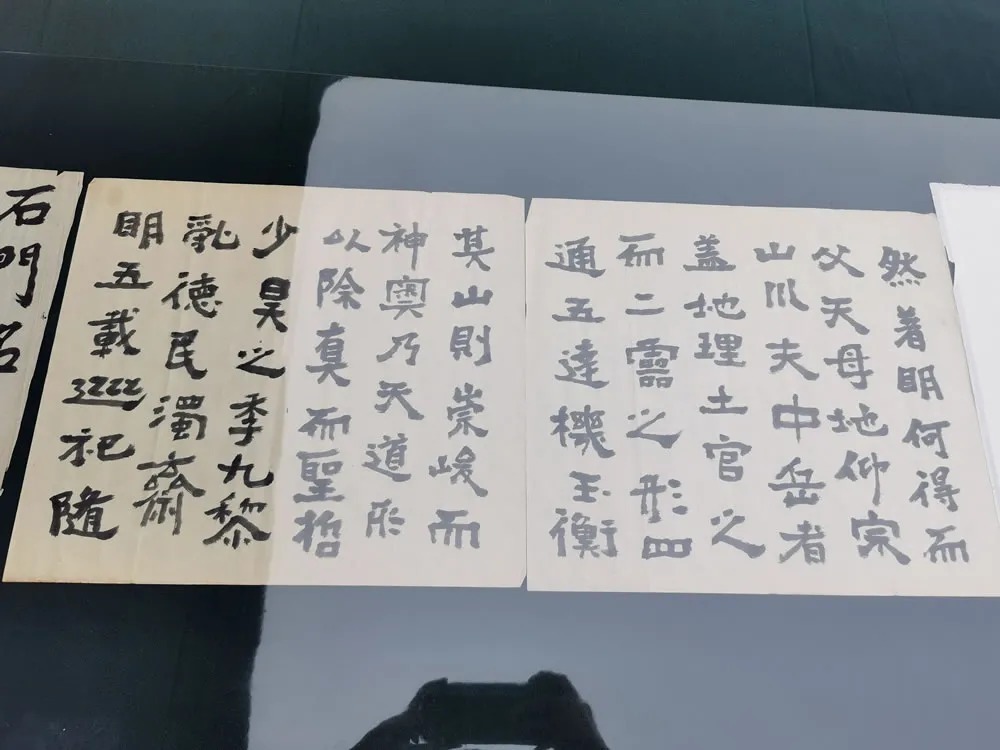 然著明何得而
父天母地仰宗
山川夫中岳者
盖地理土官之
而二靈之形四
通五達機玉衡
其山則崇峻而
神奧乃天道
以除真而聖哲
少昊之季九黎
亂德民濁齋
明五載巡祀隨
石門